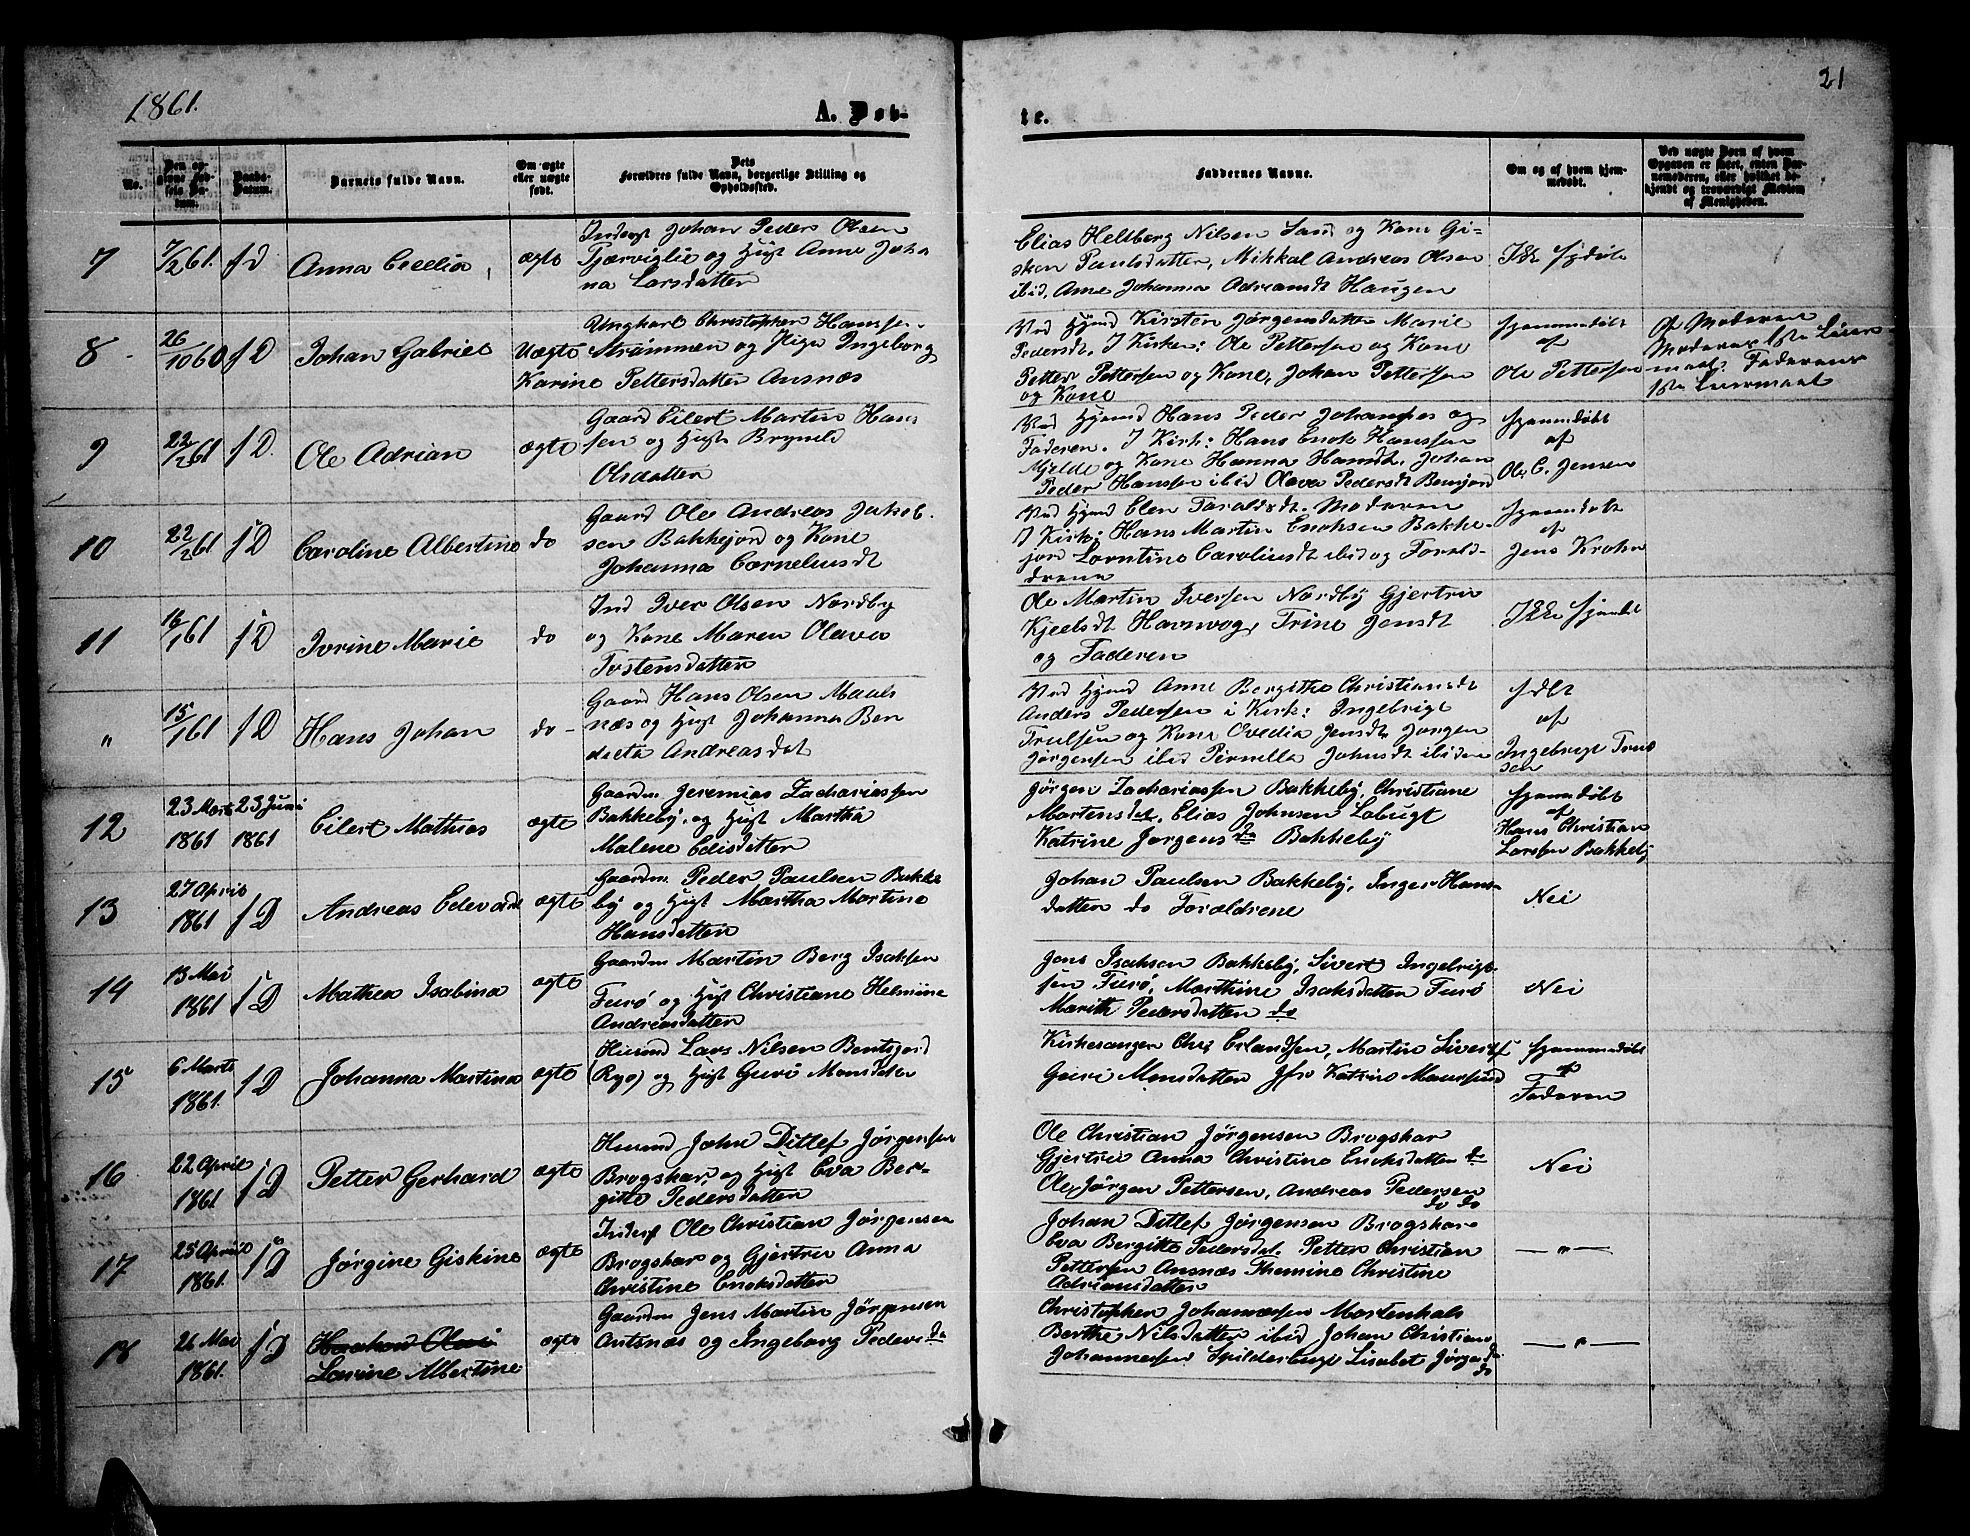 1861.
21
A. Døb-
te.
No.
Den op-
givne Fød-
sels Da-
tum.
Daabs-
Datum.
Barnets fulde Navn.
Om ægte
eller uægte
født.
Dets
Forældres fulde Navn, borgerlige Stilling og
Opholdssted.
Faddernes Navne.
Om og af hvem hjem-
medøbt.
Ved uægte Børn af hvem
Opgaven er skeet, enten Bar-
nemoderen, eller hvilket be-
kjendt og troværdigt Medlem
af Menigheden.
7
7/2 61.
Anna Cecelia
ægte
Inderst Johan Peder Olsen
og Hust Anne Joha
na Larsdatter
Elias Hellberg Nilsen Sand og Kone Gi-
sken Paulsdatter, Mikkal Andreas Olsen
ibid, Ane Johanna Adriansdt Haugen
Ikke hjdøbt
8
26/10 60
Johan Gabriel
Uægte
Ungkarl Christopher Hanssen
Strømmen og Pige Ingeborg
Karine Pettersdatter Ansnæs
Ved Hjemd Kirsten Jørgensdatter Marie
Pedersdt. I Kirken: Ole Pettersen og Kone
Petter Pettersen og Kone, Johan Pettersen
og Kone
hjemmedøbt
af
Ole Pettersen
Af Moderen
Moderens 1ste Leier-
maal. Faderens
1ste Leiermaal
9
22/2 61
Ole Adrian
ægte
Gaard Eilert Martin Hans
sen og Hust Brynild
Olsdatter
Ved Hjemd Hans Peder Johannes og
Faderen. I Kirk: Hans Enok Hanssen
Mjelde og Kone Hanna Hansdt. Johan
Peder Hanssen ibid Oleva Pedersdt Bensjord
hjemmdøbt
af
Ole C. Jensen
10
22/2 61
Caroline Albertine
do
Gaard Ole Andreas Jakob-
sen Bakkejord og Kone
Johanna Corneliusdt
Ved Hjemd Elen Taraldsdt. Moderen
I Kirk: Hans Martin Enoksen Bakke-
jord Lorntine Caroliusdt ibid og Foræl-
drene
hjemmdøbt
af
Jens Krohn
11
16/1 61
Ivrine Marie
do
Ind Iver Olsen Nordby
og Kone Maren Olava
Tostensdatter
Ole Martin Iversen Nordby Gjertru
Kjeelsdt Havnvog, Trine Jensdt
og Faderen
Ikke hjemdbt
"
15/1 61
Hans Johan
do
Gaard Hans Olsen Maals
næs og Hust Johanna Ben
dicta Andreasdat
Ved Hjemd Anne Bergitte Christiansdt
Anders Pedersen i Kirk: Ingebrigt
Trulsen og Kone Ovedia Jensdt, Jørgen
Jørgensen ibid Pernella Johnsdt ibidem
hjdbt
af
Ingebrigt Trul
sen
12
23 Marts
1861
23 Juni
1861
Eilert Mathias
ægte
Gaardm Jeremias Zachariassen
Bakkeby, og Hust Martha
Malene Edisdatter
Jørgen Zachariassen Bakkeby, Christiane
Martensdat, Elias Johnsen Labugt
Katrine Jørgensda Bakkeby
hjemmdøbt
af
Hans Christian
Larssen Bakkeby
13
27 April
1861
Andreas Edevard
ægte
Gaardm Peder Paulsen Bakke
by og Hust Martha Martine
Hansdatter
Johan Paulsen Bakkeby, Inger Hans-
datter do Forældrene
Nei
14
13 Mai
1861
Mathea Isabina
ægte
Gaardm Martin Berg Isaksen
Furø og Hust Christiane Helmine
Andreasdatter
Jens Isaksen Bakkeby, Sivert Ingebrigt-
sen Furø, Marthine Isaksdatter Furø
Marith Pedersdatter do
Nei
15
6 Marts
1861.
Johanna Martina
ægte
Husmd Lars Nilsen Bentsjord
(Rye) og Hust Guri Monsdatter
Kirkesanger Chr. Erlandsen, Martin Siverts
Guri Monsdatter Jfr Katrine Maursund
hjemmedøbt
af
Faderen
16
22 April
1861
Petter Gerhard
ægte
Husmd John Ditlef Jørgensen
Brogskar, og Hust Eva Ber-
gitte Pedersdatter
Ole Christian Jørgensen Brogskar
Gjertru Anna Christine Enoksdatter do
Ole Jørgen Pettersen, Andreas Pedersen
do do
Nei
17
25 April
1861.
Jørgine Giskine
ægte
Inderst Ole Christian Jørgensen
Brogskar og Gjertru Anna
Christine Enoksdatter
Johan Ditlef Jørgensen Brogskar
Eva Bergitte Pedersdat. Petter Christian
Pettersen Ansnæs Themine Christine
Adriansdatter
— " —
18
26 Mai
1861.
Laurine Albertine
ægte
Gaardm Jens Martin Jørgensen
Antsnæs og Ingeborg Pedersda
Christopher Johannessen Mortenhals
Berthe Nilsdatter ibid Johan Christian
Johannessen Spilderbugt Lisabet Jørgensda
do
— " —